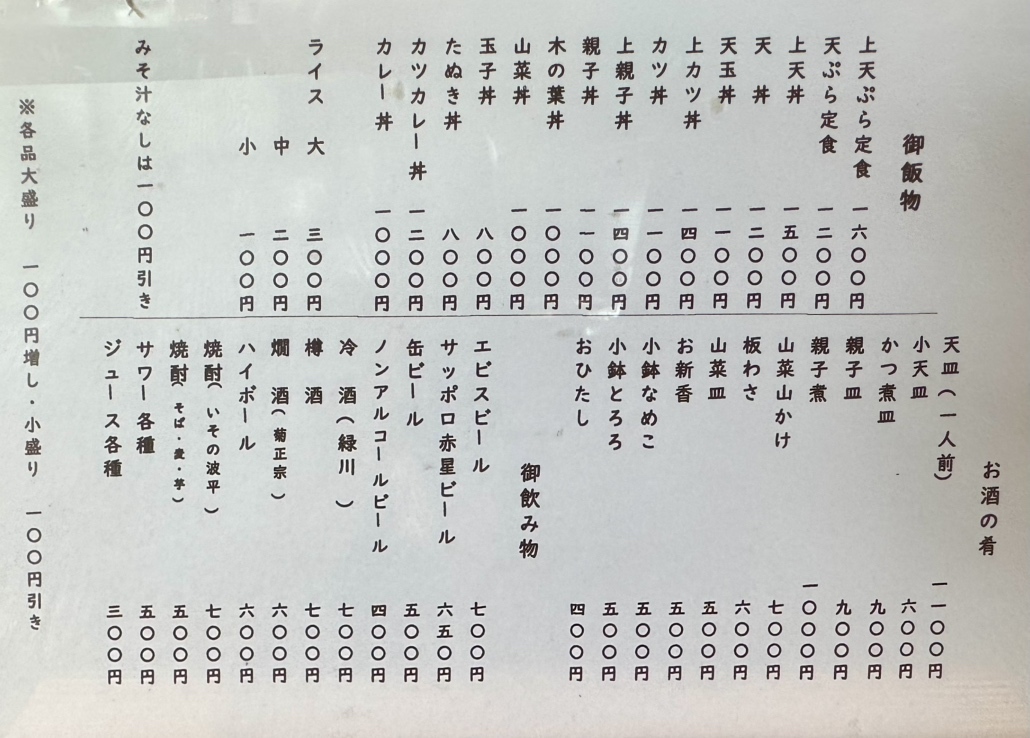 御飯物
上天ぷら定食　一六〇〇円
天ぷら定食　一二〇〇円
上天丼　一五〇〇円
天　丼　一二〇〇円
天玉丼　一一〇〇円
上カツ丼　一四〇〇円
カツ丼　一一〇〇円
上親子丼　一四〇〇円
親子丼　一一〇〇円
木の葉丼　一〇〇〇円
山菜丼　一〇〇〇円
玉子丼　八〇〇円
たぬき丼　八〇〇円
カツカレー丼　一二〇〇円
カレー丼　一〇〇〇円
ライス　大　三〇〇円
中　二〇〇円
小　一〇〇円
みそ汁なしは一〇〇円引き
お酒の肴
天皿（一人前）　一一〇〇円
小天皿　六〇〇円
かつ煮皿　九〇〇円
親子皿　九〇〇円
親子煮　一〇〇〇円
山菜山かけ　七〇〇円
板わさ　六〇〇円
山菜皿　五〇〇円
お新香　五〇〇円
小鉢なめこ　五〇〇円
小鉢とろろ　五〇〇円
おひたし　四〇〇円
御飲み物
エビスビール　七〇〇円
サッポロ赤星ビール　六五〇円
缶ビール　五〇〇円
ノンアルコールビール　四〇〇円
冷　酒（緑川）　七〇〇円
樽　酒　七〇〇円
燗　酒（菊正宗）　六〇〇円
ハイボール　六〇〇円
焼酎（いその波平）　七〇〇円
焼酎（そば・麦・芋）　五〇〇円
サワー各種　五〇〇円
ジュース各種　三〇〇円
※各品大盛り　一〇〇円増し・小盛り　一〇〇円引き